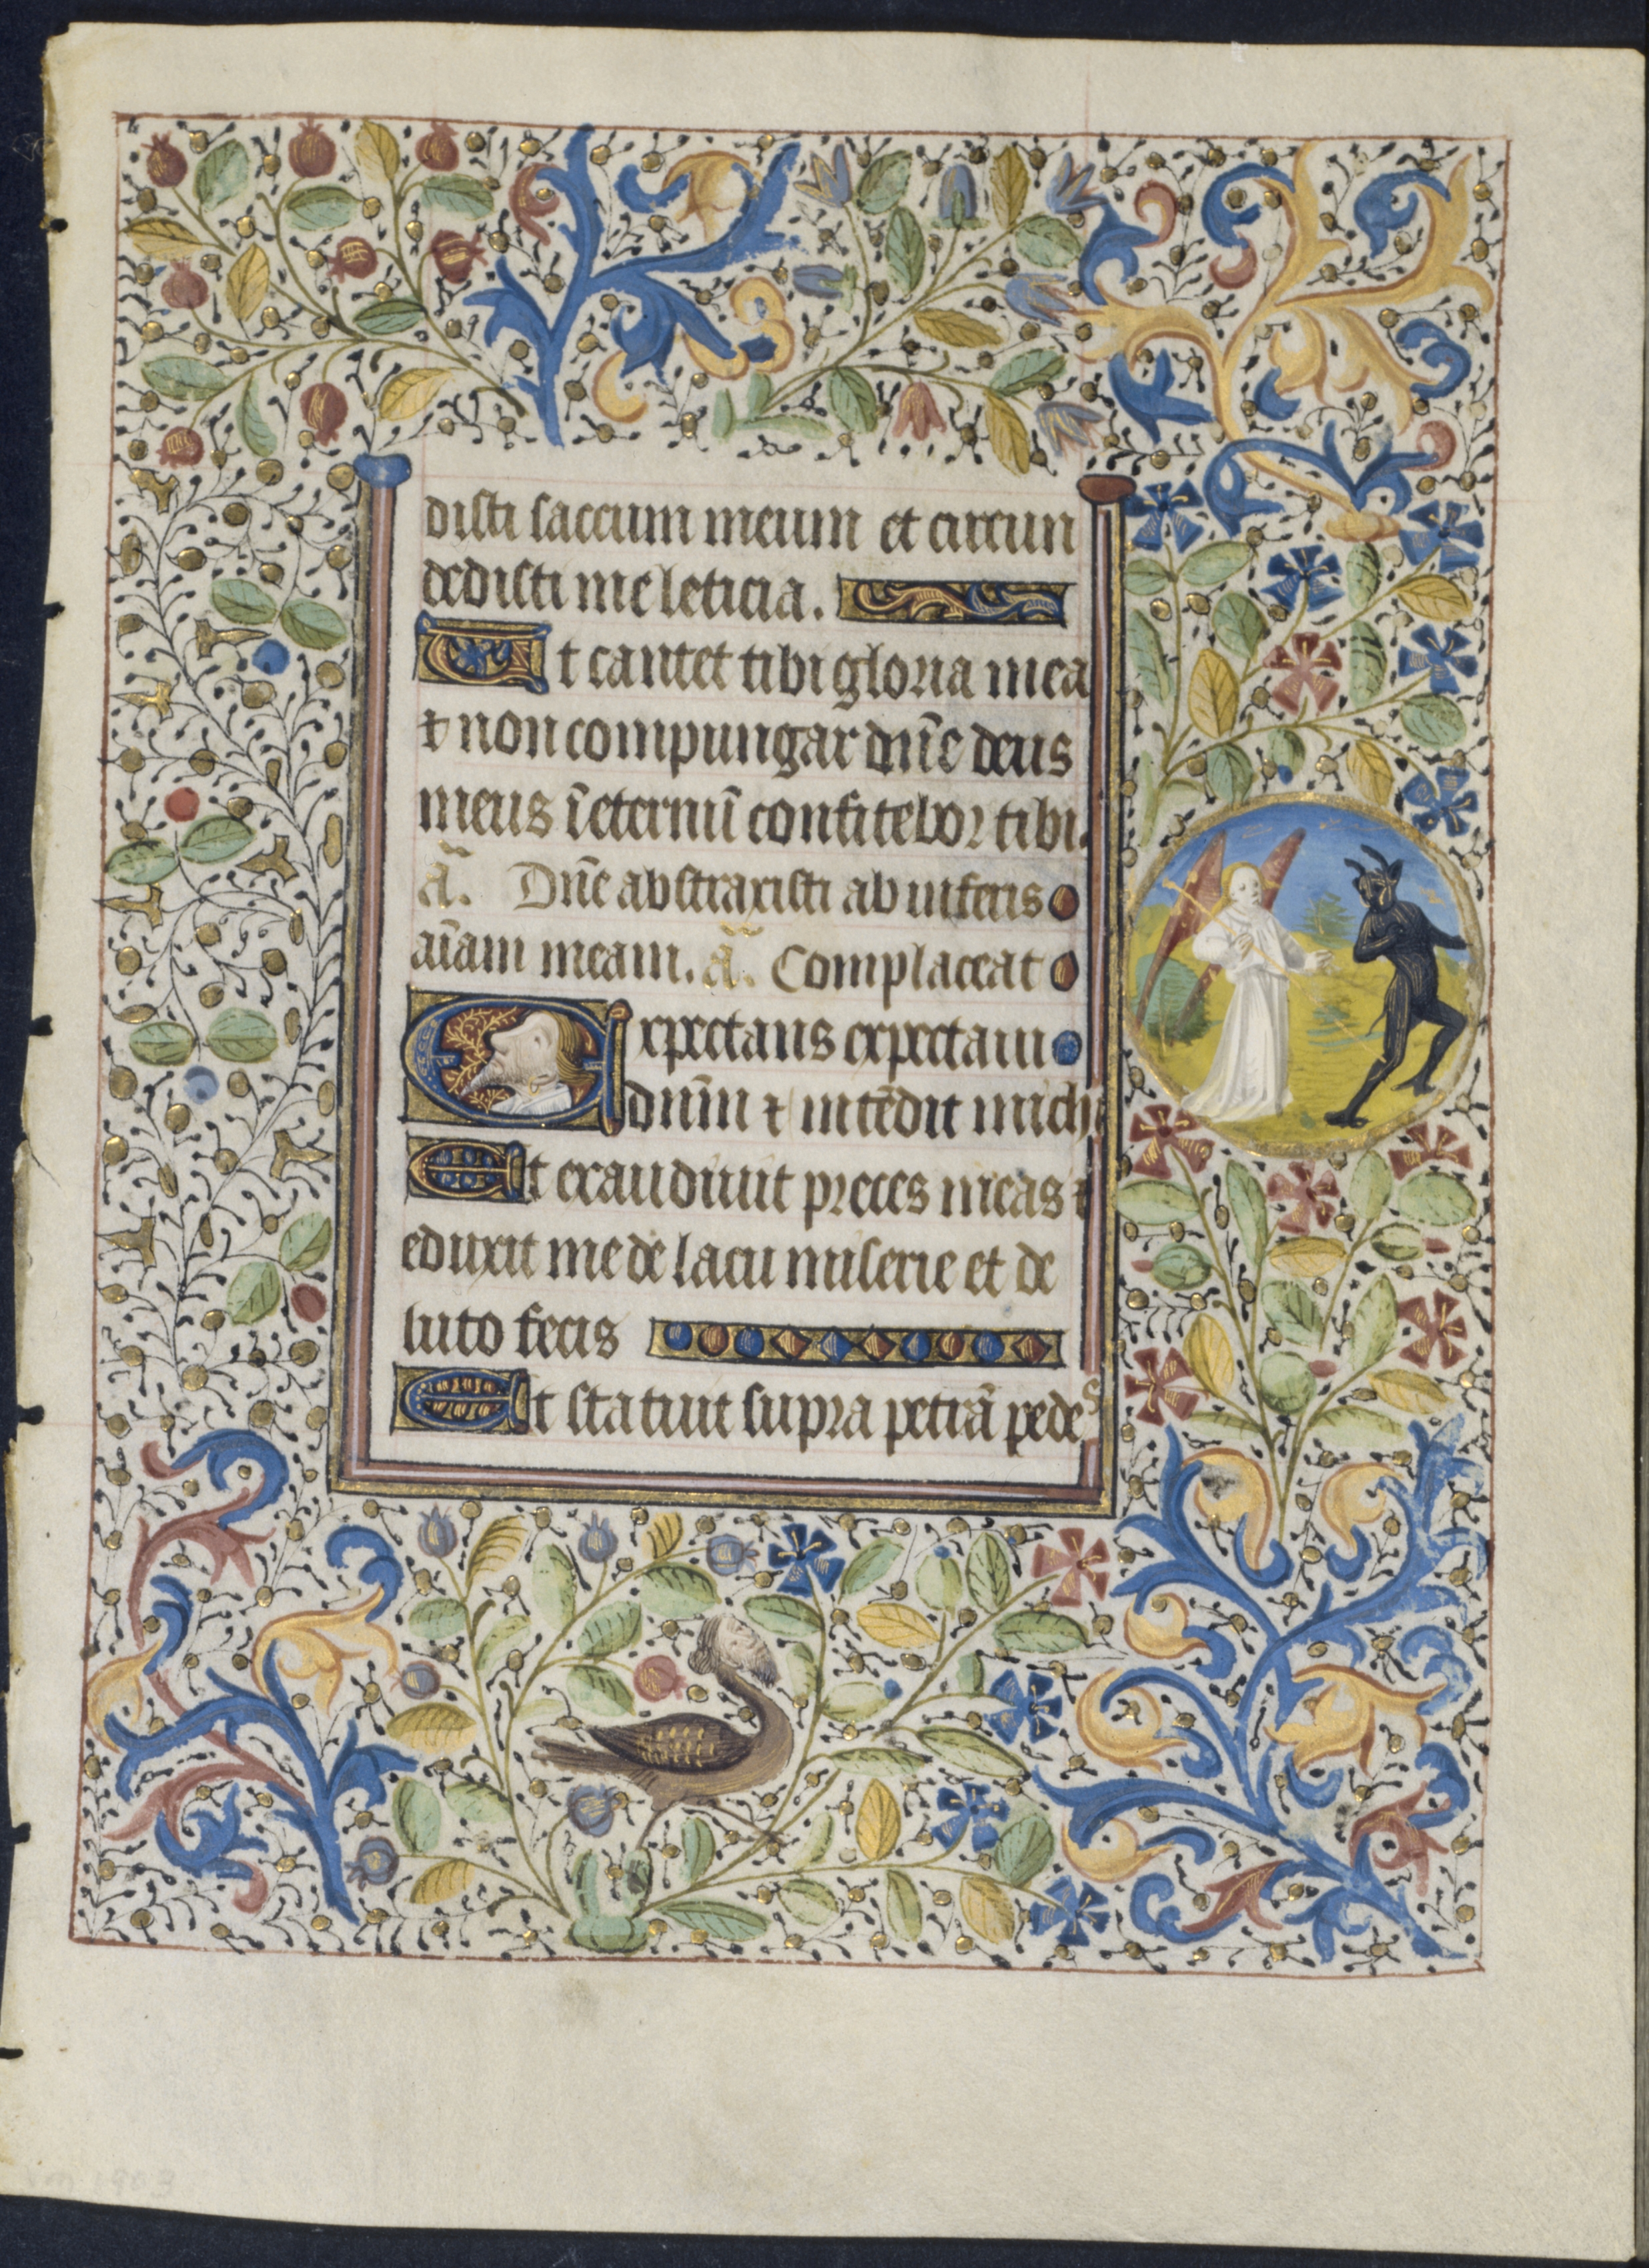 disti saccum meum et circun
dedisti me leticia.
Ut cantet tibi gloria mea
⁊ non compungar dn̄e deus
meus ī eternū confitebor tibi.
ā. Dn̄e abstraxisti ab inferis
aīam meam. ā. Complaceat
Expectans expectaui
dnm̄ ⁊ intēdit michi
Et exaudiuit preces meas ⁊
eduxit me de lacu miserie et de
luto fecis
Et statuit supra petrā pedes